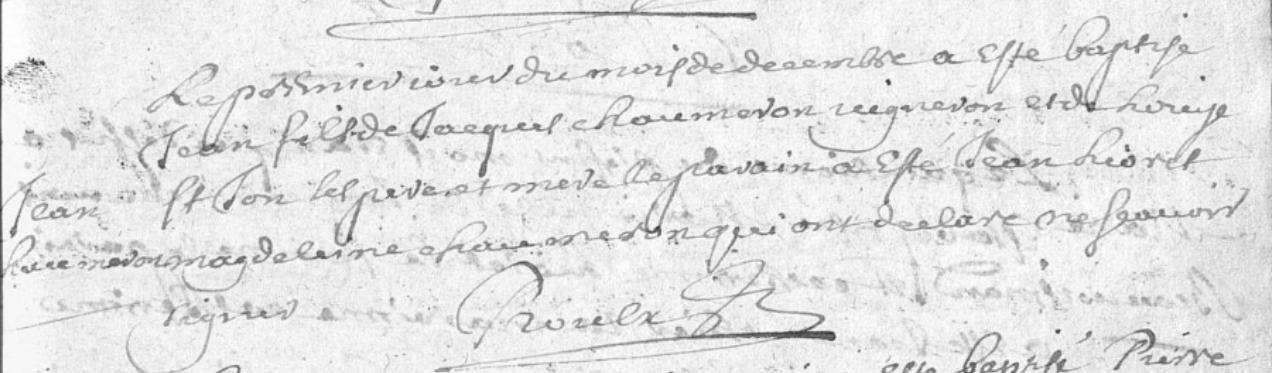 Le premier iour du mois de decembre a esté baptise
Jean fils de Jacques chaumeron vigneron et de Louise
Jean St Jon les pere et mere le parain a esté Jean Lioret
chaumeron magdeleine chaumeron qui ont declare ne sçavoir
signer Roulx
esté baptisé Pierre